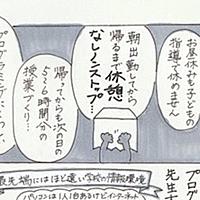 お昼休みも子どもの
指導で休めません
朝出勤してから
帰るまで休憩
なしノンストップ…
帰ってからも次日の
5〜6時間分の
授業プリ…
プログラミングに
最先端にはほど遠い学校の情報環境
パソコンは1人1台あるけどインターネット
プログ
先生方